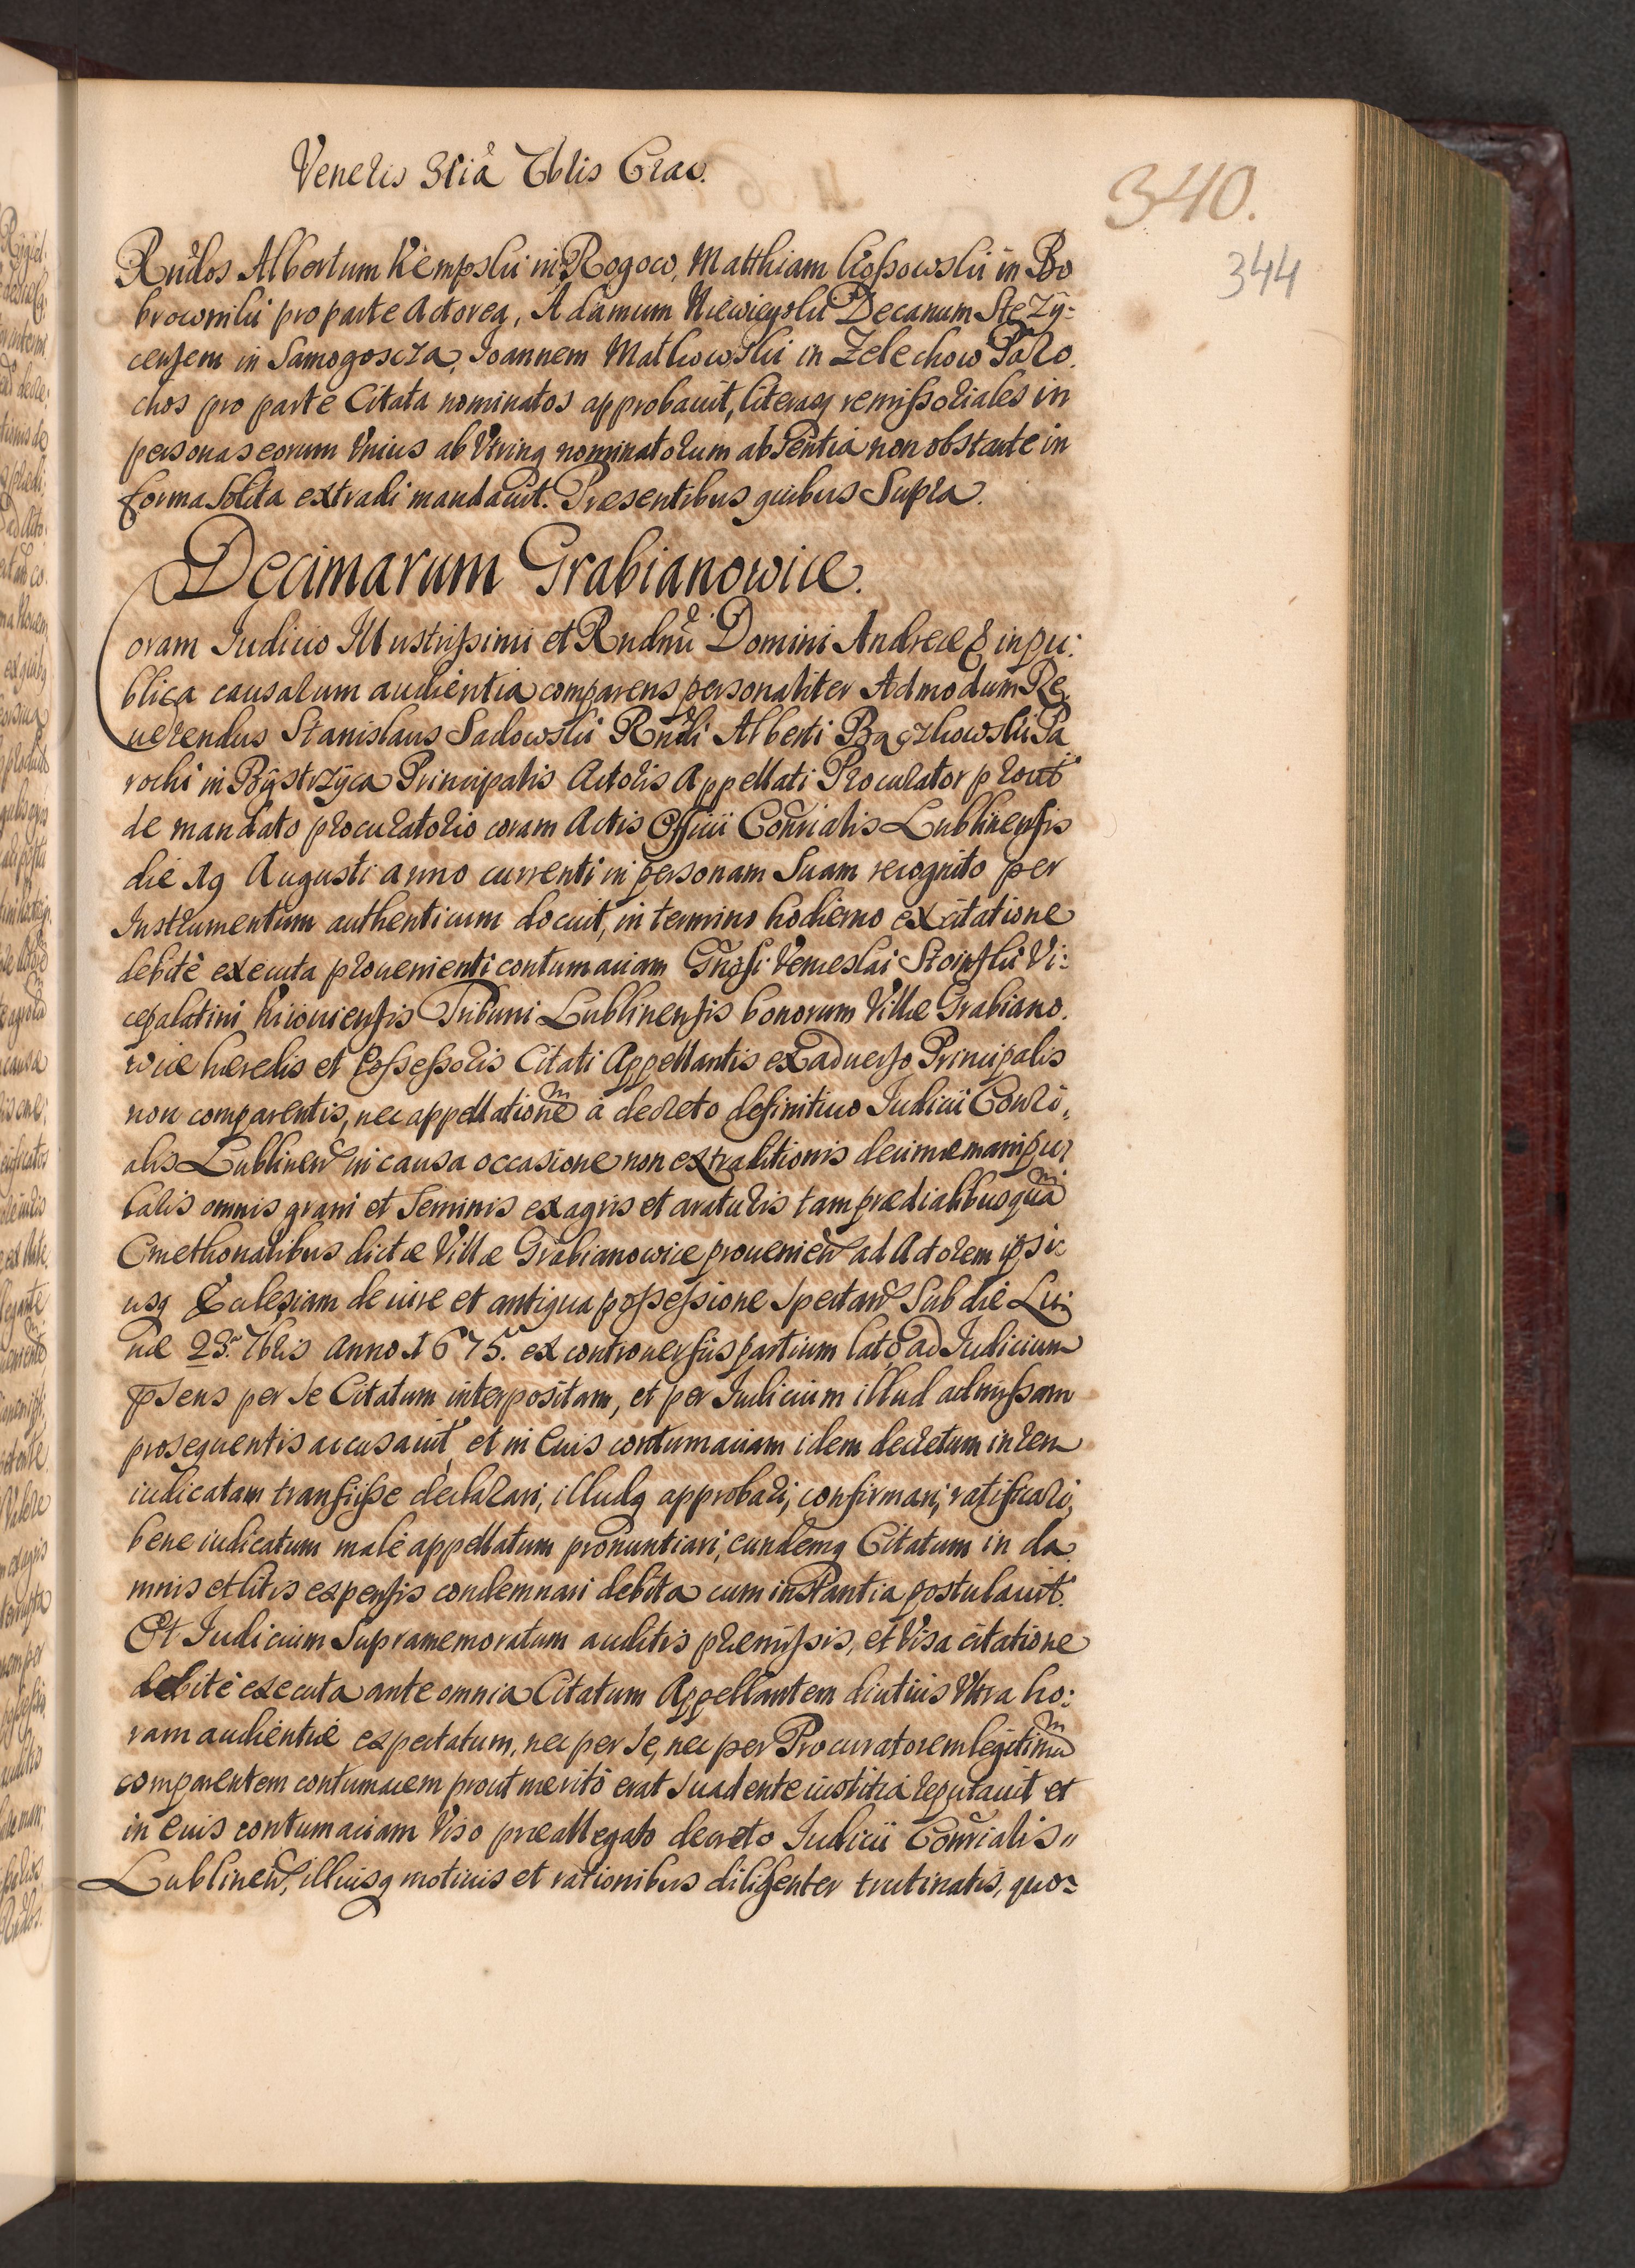 Veneris 3tiâ Xbris Crac.
340.
344
Rndos Albertum Kempski in Rogow, Matthiam Kossowski in Bo
browniki pro parte Actorea, Adamum Niewiegolski Decanum Stezy=
censem in Samogoscza, Joannem Matkowski in Zelechow Paro.
chos pro parte Citata nominatos approbauit, literasq remissoriales in
personas eorum Vnius ab Vtrinq nominatorum absentia non obstante in
forma solita extradi mandauit. Presentibus quibus Supra.
Decimarum Grabianowice.
Coram Iudicio Illustrissimi et Rndmi Domini Andreæ & in pu:
blica causarum audientia comparens personaliter Admodum Re
uerendus Stanislaus Sadowski Rndi Alberti Bączkowski Pa
rochi in Bystrzyca Principalis Actoris Appellati Procurator prout
de mandato procuratorio coram Actis Officii Consrialis Lublinensis
die 19 Augusti anno currenti in personam Suam recognito per
Instrumentum authenticum docuit, in termino hodierno ex citatione
debitè executa prouenienti contumaciam Gnosi Venceslai Stoinski Vi:
cepalatini Kiiouiensis Tribuni Lublinensis bonorum Villæ Grabiano.
wice hæredis et Possessoris Citati Appellantis ex aduerso Principalis
non comparentis, nec appellationem à decreto definitiuo Iudicii Consri,
alis Lublinen in causa occasione non extraditionis decimæ manipu,
laris omnis grani et Seminis ex agris et araturis tam prædialibus quam
Cmethonalibus dictæ Villæ Grabianowice prouenien ad Actorem ipsi
usq Ecclesiam de iure et antiqua possessione Spectan Sub die Lu:
næ 23. 7bris Anno 1675. ex controuersiis partium lato ad Iudicium
psens per Se Citatum interpositam, et per Iudicium illud admissam
prosequentis accusauit, et in Euis contumaciam idem decretum in rem
iudicatam transiisse declarari, illudq approbari, confirmari, ratificari,
bene iudicatum malè appellatum pronuntiari, eundemq Citatum in da
mnis et litis expensis condemnari debita cum instantia postulauit.
Et Iudicium Supramemoratum auditis præmissis, et Visa citatione
debitè executa ante omnia Citatum Appellantem diutius Vltra ho:
ram audientiæ expectatum, nec per Se, nec per Procuratorem legitimum
comparentem contumacem prout meritò erat Suadente iustitia reputauit et
in Euis contumaciam Viso præallegato decreto Iudicii Consrialis"
Lublinen, illiusq motiuis et rationibus diligenter trutinatis, quo=